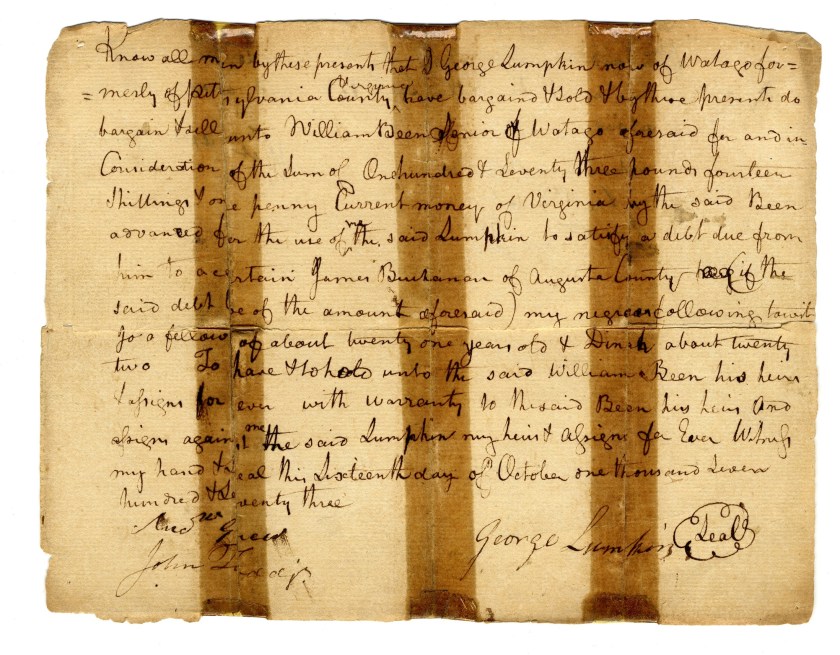 Know all men by these presents that I George Lumpkin now of Watago for=
= merly of Pitsylvania County Virginia have bargaind & sold & by these presents do
bargain & sell unto William Been Senior of Watago aforesaid for and in
Consideration of the Sum of Onehundred & Seventy three pounds fourteen
Shillings & one penny Current money of Virginia by the said Been
advanced for the use of me the said Lumpkin to satisfy a debt due from
him to a certain James Buchanan of Augusta County if the
said debt be of the amount aforesaid) my negroes following towit
Jo a fellow of about twenty one years old & Dinah about twenty
two To have & to hold unto the said William Been his heirs
& assigns for ever with warranty to the said Been his heirs and
assigns against me the said Lumpkin my heirs & assigns for Ever Witness
my hand & seal this Sixteenth day of October one thousand Seven
hundred & Seventy three
Andw Greer
John
George Lumpkin Seal